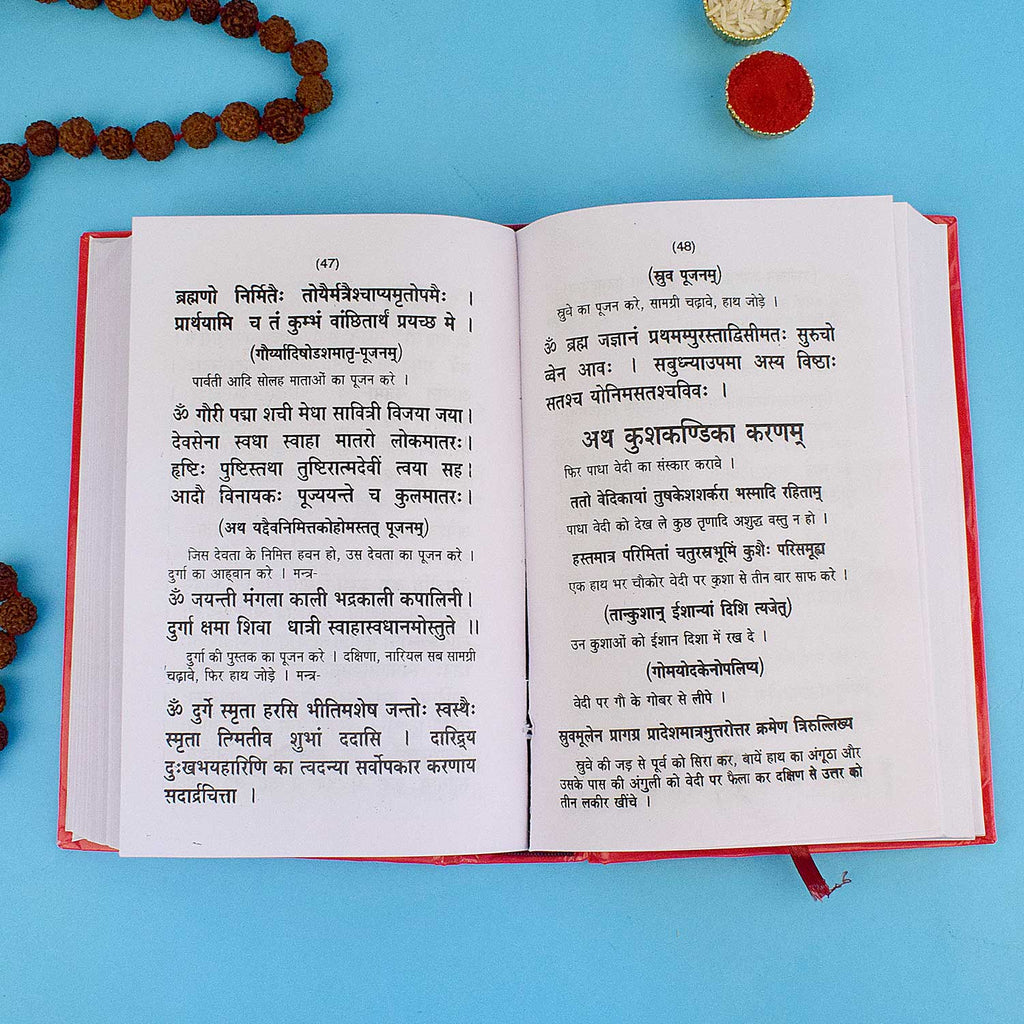 (47)
ब्रह्मणो निर्मितैः तोयैर्मत्रैश्चाप्यमृतोपमैः ।
प्रार्थयामि च तं कुम्भं वांछितार्थं प्रयच्छ मे ।
(गौर्य्यादिषोडशमातृ-पूजनम्)
पार्वती आदि सोलह माताओं का पूजन करे ।
ॐ गौरी पद्मा शची मेधा सावित्री विजया जया।
देवसेना स्वधा स्वाहा मातरो लोकमातरः।
हृष्टिः पुष्टिस्तथा तुष्टिरात्मदेवीं त्वया सह।
आदौ विनायकः पूज्ययन्ते च कुलमातरः।
(अथ यद्दैवनिमित्तकोहोमस्तत् पूजनम्)
जिस देवता के निमित्त हवन हो, उस देवता का पूजन करे ।
दुर्गा का आह्वान करे । मन्त्र-
ॐ जयन्ती मंगला काली भद्रकाली कपालिनी।
दुर्गा क्षमा शिवा धात्री स्वाहास्वधानमोस्तुते ॥
दुर्गा की पुस्तक का पूजन करे । दक्षिणा, नारियल सब सामग्री
चढ़ावे, फिर हाथ जोड़े । मन्त्र-
ॐ दुर्गे स्मृता हरसि भीतिमशेष जन्तोः स्वस्थैः
स्मृता त्मितीव शुभां ददासि । दारिद्र्य
दुःखभयहारिणि का त्वदन्या सर्वोपकार करणाय
सदार्द्रचित्ता ।
(48)
(स्रुव पूजनम्)
स्रुवे का पूजन करे, सामग्री चढ़ावे, हाथ जोड़े ।
ॐ ब्रह्म जज्ञानं प्रथमम्पुरस्ताद्विसीमतः सुरुचो
व्वेन आवः । सबुध्न्याउपमा अस्य विष्ठाः
सतश्च योनिमसतश्चविवः ।
अथ कुशकण्डिका करणम्
फिर पाधा वेदी का संस्कार करावे ।
ततो वेदिकायां तुषकेशशर्करा भस्मादि रहिताम्
पाधा वेदी को देख ले कुछ तृणादि अशुद्ध वस्तु न हो ।
हस्तमात्र परिमितां चतुरस्रभूमिं कुशैः परिसमूह्य
एक हाथ भर चौकोर वेदी पर कुशा से तीन बार साफ करे ।
(तान्कुशान् ईशान्यां दिशि त्यजेत्)
उन कुशाओं को ईशान दिशा में रख दे ।
(गोमयोदकेनोपलिप्य)
वेदी पर गौ के गोबर से लीपे ।
स्रुवमूलेन प्रागग्र प्रादेशमात्रमुत्तरोत्तर क्रमेण त्रिरुल्लिख्य
स्रुवे की जड़ से पूर्व को सिरा कर, बायें हाथ का अंगूठा और
उसके पास की अंगुली को वेदी पर फैला कर दक्षिण से उत्तर को
तीन लकीर खींचे ।